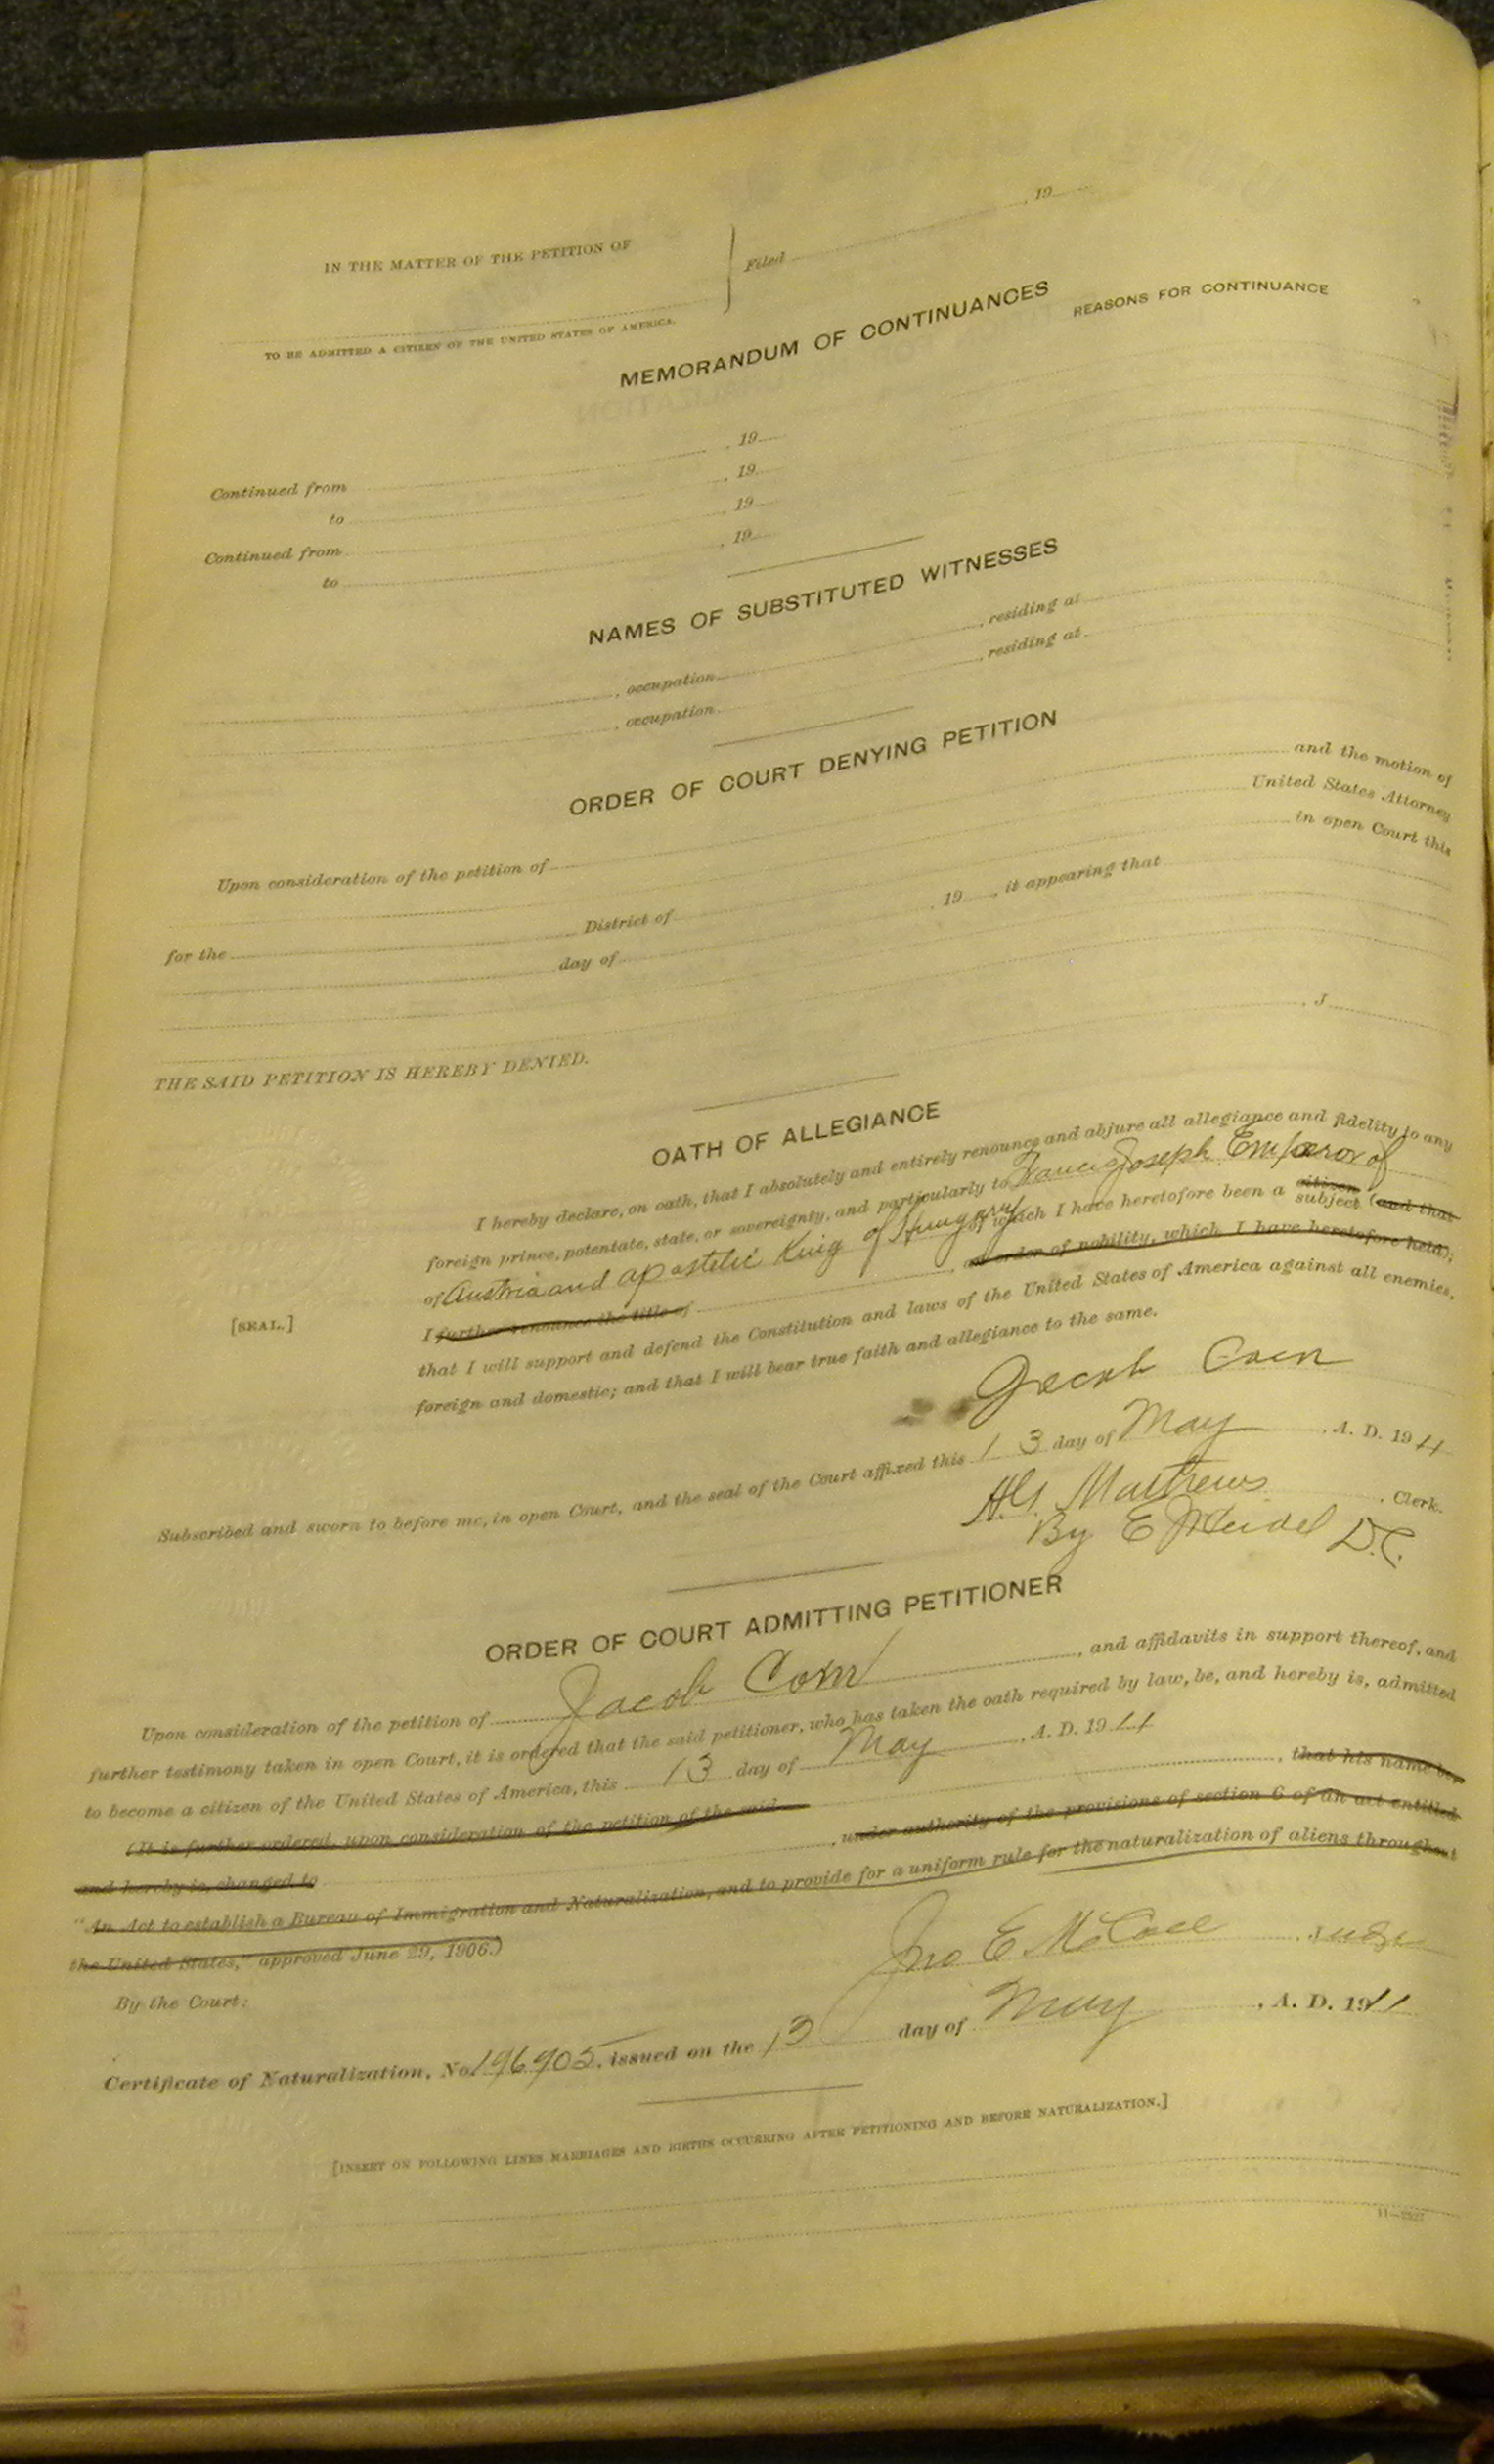 IN THE MATTER OF THE PETITION OF
Filed , 19
TO BE ADMITTED A CITIZEN OF THE UNITED STATES OF AMERICA.
MEMORANDUM OF CONTINUANCES
REASONS FOR CONTINUANCE
Continued from , 19
to , 19
Continued from , 19
to , 19
NAMES OF SUBSTITUTED WITNESSES
, occupation , residing at
, occupation , residing at
ORDER OF COURT DENYING PETITION
Upon consideration of the petition of and the motion of
United States Attorney
for the District of in open Court this
day of , 19 , it appearing that
THE SAID PETITION IS HEREBY DENIED.
, J
OATH OF ALLEGIANCE
I hereby declare, on oath, that I absolutely and entirely renounce and abjure all allegiance and fidelity to any
foreign prince, potentate, state, or sovereignty, and particularly to Francis Joseph Emperor of
of Austria and apostolic King of Hungary of which I have heretofore been a citizen subject (and that
I further renounce the title of , an order of nobility, which I have heretofore held);
that I will support and defend the Constitution and laws of the United States of America against all enemies,
foreign and domestic; and that I will bear true faith and allegiance to the same.
[SEAL.]
Jacob
Subscribed and sworn to before me, in open Court, and the seal of the Court affixed this 13 day of May , A. D. 1911
Mathews , Clerk.
By E D.C.
ORDER OF COURT ADMITTING PETITIONER
Upon consideration of the petition of Jacob Corn , and affidavits in support thereof, and
further testimony taken in open Court, it is ordered that the said petitioner, who has taken the oath required by law, be, and hereby is, admitted
to become a citizen of the United States of America, this 13 day of May , A. D. 1911
(It is further ordered, upon consideration of the petition of the said , that his name be,
and hereby is, changed to , under authority of the provisions of section 6 of an act entitled
"An Act to establish a Bureau of Immigration and Naturalization, and to provide for a uniform rule for the naturalization of aliens throughout
the United States," approved June 29, 1906.)
By the Court:
Jno E McCall Judge
Certificate of Naturalization, No 196905, issued on the 13 day of May , A. D. 1911
[INSERT ON FOLLOWING LINES MARRIAGES AND BIRTHS OCCURRING AFTER PETITIONING AND BEFORE NATURALIZATION.]